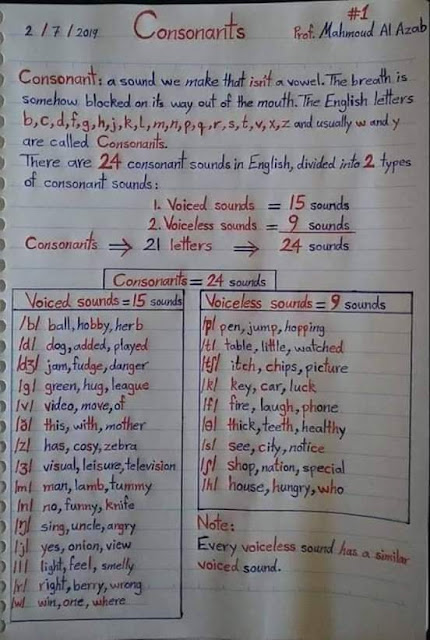 2/7/2019 Consonants #1 Prof. Mahmoud Al Azab
Consonant: a sound we make that isn't a vowel. The breath is
somehow blocked on its way out of the mouth. The English letters
b, c, d, f, g, h, j, k, l, m, n, p, q, r, s, t, v, x, z and usually w and y
are called Consonants.
There are 24 consonant sounds in English, divided into 2 types
of consonant sounds:
1. Voiced sounds = 15 sounds
2. Voiceless sounds = 9 sounds
Consonants ⇒ 21 letters ⇒ 24 sounds
Consonants = 24 sounds
Voiced sounds = 15 sounds
/b/ ball, hobby, herb
/d/ dog, added, played
/dʒ/ jam, fudge, danger
/g/ green, hug, league
/v/ video, move, of
/ð/ this, with, mother
/z/ has, cosy, zebra
/ʒ/ visual, leisure, television
/m/ man, lamb, tummy
/n/ no, funny, knife
/ŋ/ sing, uncle, angry
/j/ yes, onion, view
/l/ light, feel, smelly
/r/ right, berry, wrong
/w/ win, one, where
Voiceless sounds = 9 sounds
/p/ pen, jump, hopping
/t/ table, little, watched
/tʃ/ itch, chips, picture
/k/ key, car, luck
/f/ fire, laugh, phone
/θ/ thick, teeth, healthy
/s/ see, city, notice
/ʃ/ shop, nation, special
/h/ house, hungry, who
Note:
Every voiceless sound has a similar
voiced sound.